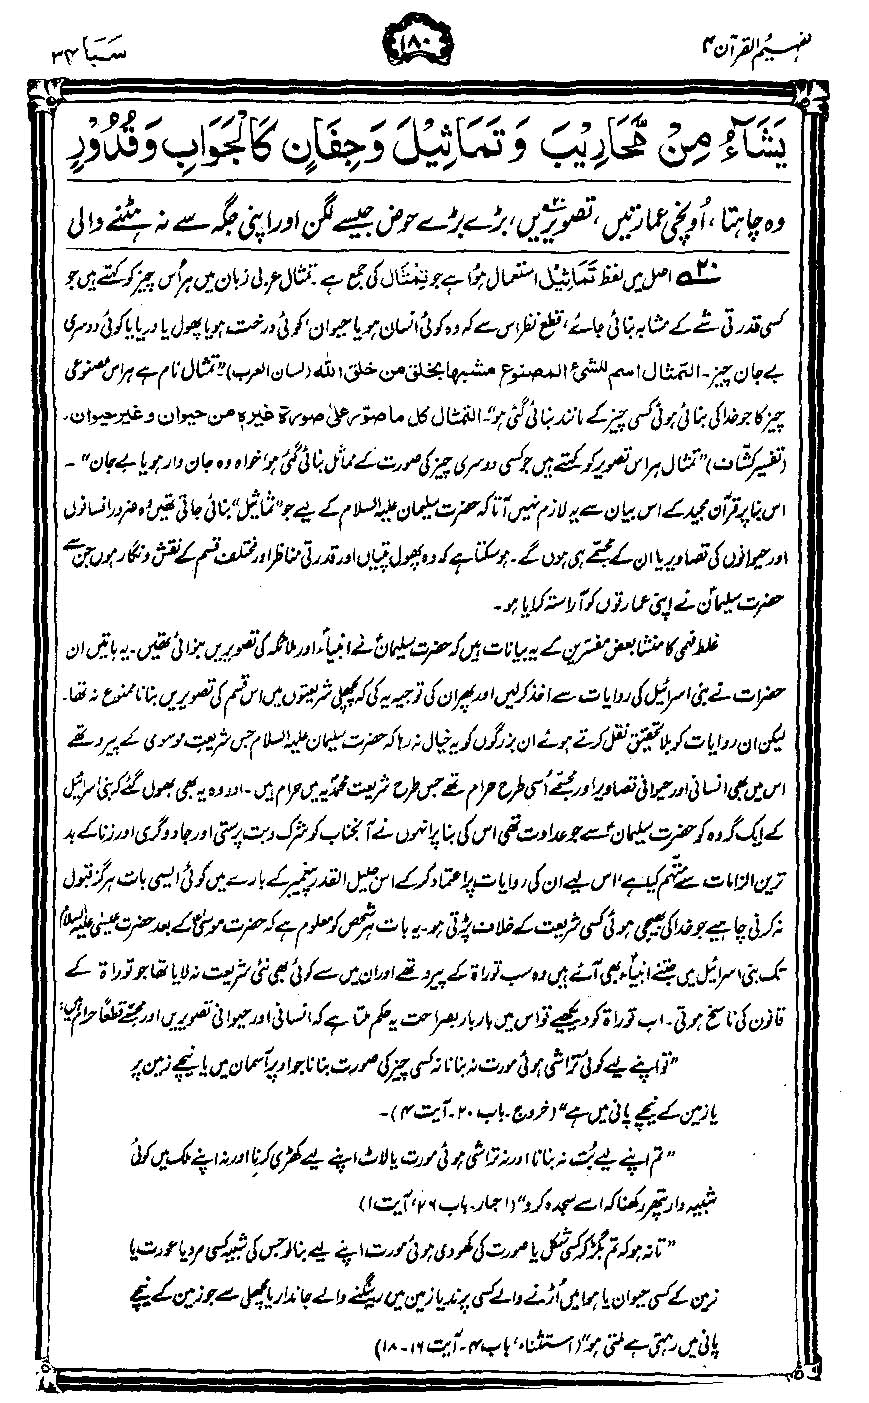 تفہیم القرآن ۴
۱۸۰
سَبَا ۳۴
يَشَآءُ مِنْ مَّحَارِيْبَ وَ تَمَاثِيْلَ وَ جِفَانٍ كَالْجَوَابِ وَ قُدُوْرٍ
وہ چاہتا، اُونچی عمارتیں، تصویریں،۲۰ بڑے بڑے حوض جیسے لگن اور اپنی جگہ سے نہ ہٹنے والی
۲۰؎ اصل میں لفظ تَمَاثِیل استعمال ہوُا ہے جو تِمثَال کی جمع ہے۔ تمثال عربی زبان میں ہر اُس چیز کو کہتے ہیں جو
کسی قدرتی شے کے مشابہ بنائی جائے، قطع نظر اس سے کہ وہ کوئی انسان ہو یا حیوان، کوئی درخت ہو یا پھول یا دریا یا کوئی دوسری
بے جان چیز۔ التمثال اسم للشئ المصنوع مشبھا بخلق من خلق اللہ (لسان العرب) ”تمثال نام ہے ہر اس مصنوعی
چیز کا جو خدا کی بنائی ہوئی کسی چیز کے مانند بنائی گئی ہو“۔ التمثال کل ما صوّر علی صورۃ غیرہ من حیوان و غیر حیوان۔
(تفسیر کشّاف) ”تمثال ہر اس تصویر کو کہتے ہیں جو کسی دوسری چیز کی صورت کے مماثل بنائی گئی ہو، خواہ وہ جان دار ہو یا بے جان“۔
اس بنا پر قرآن مجید کے اس بیان سے یہ لازم نہیں آتا کہ حضرت سلیمان علیہ السلام کے لیے جو ”تماثیل“ بنائی جاتی تھیں وہ ضرور انسانوں
اور حیوانوں کی تصاویر یا ان کے مجسمے ہی ہوں گے۔ ہو سکتا ہے کہ وہ پھول پتیاں اور قدرتی مناظر اور مختلف قسم کے نقش و نگار ہوں جن سے
حضرت سلیمانؑ نے اپنی عمارتوں کو آراستہ کرایا ہو۔
غلط فہمی کا منشا بعض مفسّرین کے یہ بیانات ہیں کہ حضرت سلیمانؑ نے انبیاءؑ اور ملائکہ کی تصویریں بنوائی تھیں۔ یہ باتیں ان
حضرات نے بنی اسرائیل کی روایات سے اخذ کر لیں اور پھر ان کی توجیہ یہ کی کہ پچھلی شریعتوں میں اس قسم کی تصویریں بنانا ممنوع نہ تھا۔
لیکن ان روایات کو بلا تحقیق نقل کرتے ہوئے ان بزرگوں کو یہ خیال نہ رہا کہ حضرت سلیمان علیہ السلام جس شریعت موسوی کے پیرو تھے
اس میں بھی انسانی اور حیوانی تصاویر اور مجسمے اُسی طرح حرام تھے جس طرح شریعت محمدیّہ میں حرام ہیں۔ اور وہ یہ بھی بھول گئے کہ بنی اسرائیل
کے ایک گروہ کو حضرت سلیمانؑ سے جو عداوت تھی اس کی بنا پر انہوں نے آنجناب کو شرک و بت پرستی اور جادوگری اور زنا کے بد
ترین الزامات سے متّہم کیا ہے، اس لیے ان کی روایات پر اعتماد کر کے اس جلیل القدر پیغمبر کے بارے میں کوئی ایسی بات ہرگز قبول
نہ کرنی چاہیے جو خدا کی بھیجی ہوئی کسی شریعت کے خلاف پڑتی ہو۔ یہ بات ہر شخص کو معلوم ہے کہ حضرت موسیٰؑ کے بعد حضرت عیسیٰ علیہ السلام
تک بنی اسرائیل میں جتنے انبیاءؑ بھی آئے ہیں وہ سب توراۃ کے پیرو تھے اور ان میں سے کوئی بھی نئی شریعت نہ لایا تھا جو توراۃ کے
قانون کی ناسخ ہوتی۔ اب توراۃ کو دیکھیے تو اس میں بار بار بصراحت یہ حکم ملتا ہے کہ انسانی اور حیوانی تصویریں اور مجسمے قطعًا حرام ہیں:
”تو اپنے لیے کوئی تراشی ہوئی مورت نہ بنانا نہ کسی چیز کی صورت بنانا جو اوپر آسمان میں یا نیچے زمین پر
یا زمین کے نیچے پانی میں ہے“ (خروج۔ باب ۲۰۔ آیت ۴)۔
”تم اپنے لیے بُت نہ بنانا اور نہ تراشی ہوئی مورت یا لاٹ اپنے لیے کھڑی کرنا اور نہ اپنے ملک میں کوئی
شبیہ دار پتھر رکھنا کہ اسے سجدہ کرو“ (احبار۔ باب ۲۶، آیت ۱)
”تا نہ ہو کہ تم بگڑ کر کسی شکل یا صورت کی کھودی ہوئی مورت اپنے لیے بنا لو جس کی شبیہ کسی مرد یا عورت یا
زمین کے کسی حیوان یا ہوا میں اُڑنے والے کسی پرند یا زمین میں رینگنے والے جاندار یا مچھلی سے جو زمین کے نیچے
پانی میں رہتی ہے ملتی ہو“ (استثناء، باب ۴۔ آیت ۱۶-۱۸)